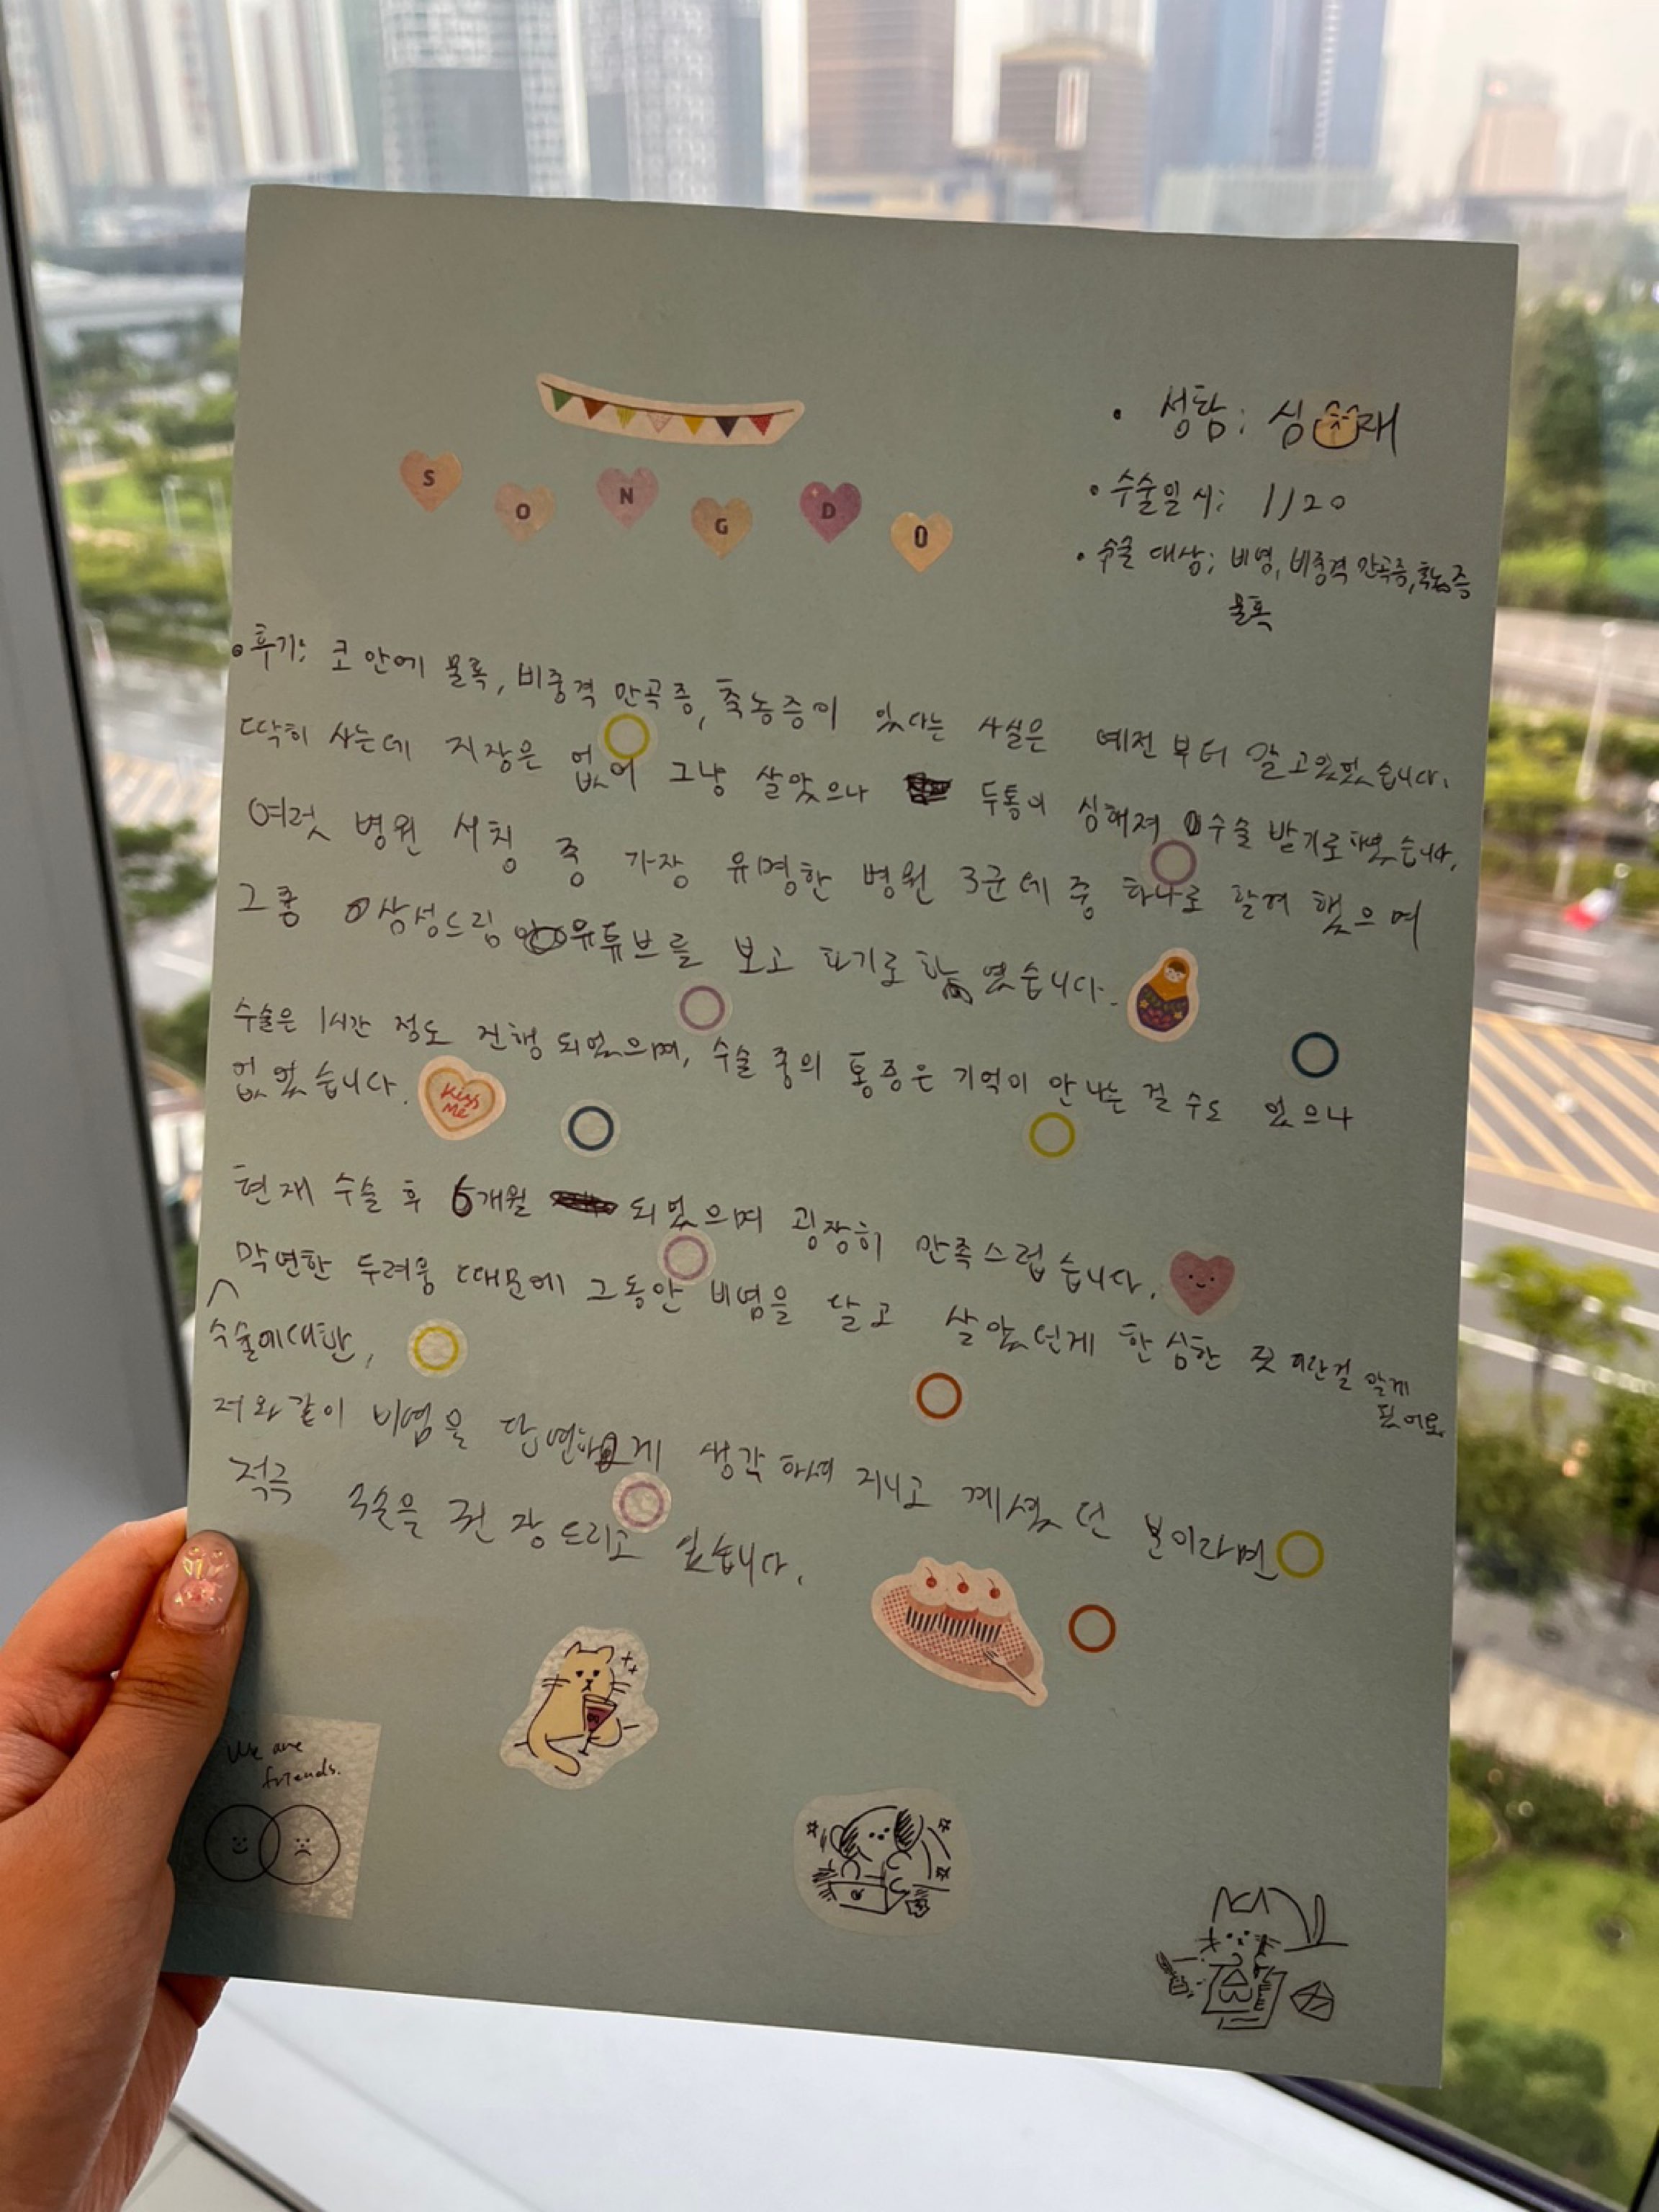 SONGDO
• 성함: 심 재
• 수술일시: 1/20
• 수술 대상: 비염, 비중격 만곡증, 축농증
물혹
• 후기: 코 안에 물혹, 비중격 만곡증, 축농증이 있다는 사실은 예전부터 알고있었습니다.
딱히 사는데 지장은 없어 그냥 살았으나 두통이 심해져 수술 받기로 했습니다.
여럿 병원 서칭 중 가장 유명한 병원 3군데 중 하나로 할려 했으며
그중 삼성드림 유튜브를 보고 하기로 하였습니다.
수술은 1시간 정도 진행 되었으며, 수술 중의 통증은 기억이 안나는 걸 수도 있으나
없었습니다.
Kiss Me
현재 수술 후 6개월 되었으며 굉장히 만족스럽습니다.
막연한 두려움 때문에 그동안 비염을 달고 살았던게 한심한 짓이란걸 알게
됬어요
수술에대한,
저와같이 비염을 당연하게 생각하며 지니고 계셨던 분이라면
적극 수술을 권장드리고 싶습니다.
We are
friends.